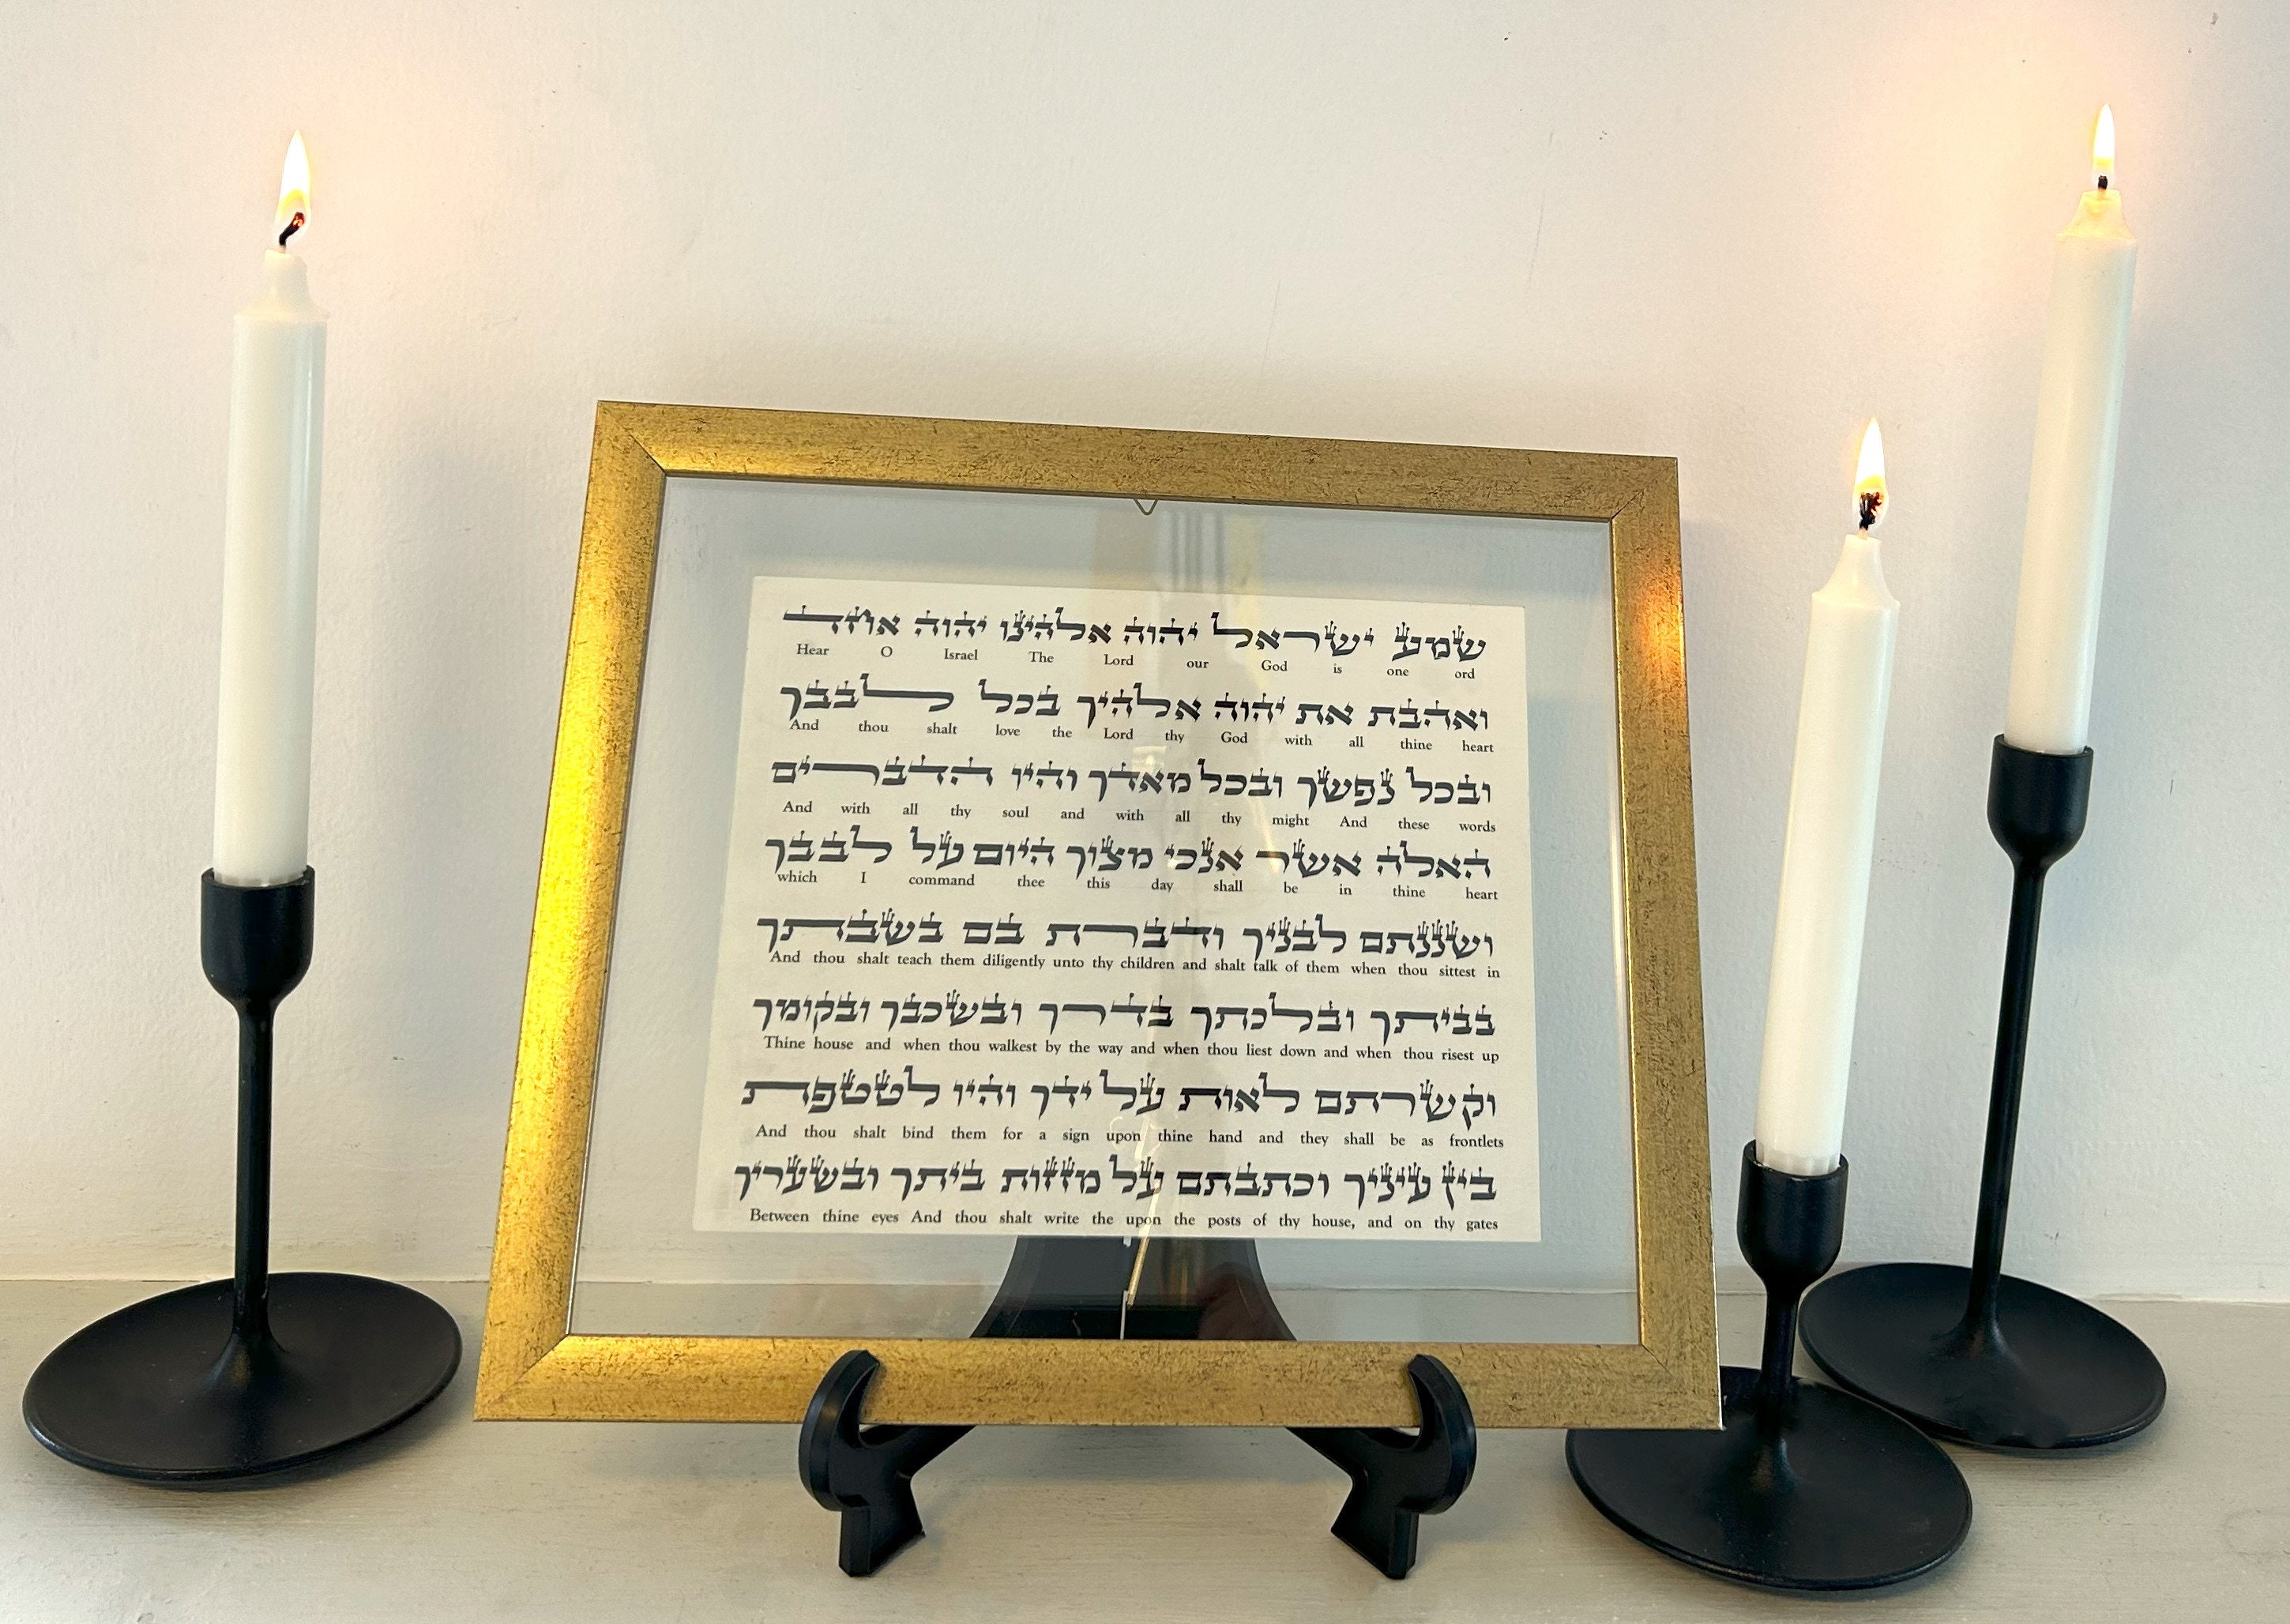 שמע ישראל יהוה אלהינו יהוה אחד
Hear O Israel The Lord our God is one ord
ואהבת את יהוה אלהיך בכל לבבך
And thou shalt love the Lord thy God with all thine heart
ובכל נפשך ובכל מאדך והיו הדברים
And with all thy soul and with all thy might And these words
האלה אשר אנכי מצוך היום על לבבך
which I command thee this day shall be in thine heart
ושננתם לבניך ודברת בם בשבתך
And thou shalt teach them diligently unto thy children and shalt talk of them when thou sittest in
בביתך ובלכתך בדרך ובשכבך ובקומך
Thine house and when thou walkest by the way and when thou liest down and when thou risest up
וקשרתם לאות על ידך והיו לטטפת
And thou shalt bind them for a sign upon thine hand and they shall be as frontlets
בין עיניך וכתבתם על מזזות ביתך ובשעריך
Between thine eyes And thou shalt write the upon the posts of thy house, and on thy gates